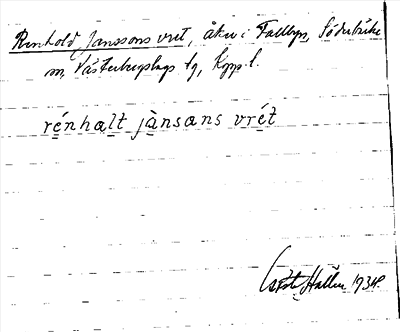 Renhold Janssons vret, åker i Fallbyn, Söderbärke
sn, Västerbergslags tg, Kopp. l.
rénhalt jànsans vrét
Hallin 1934.